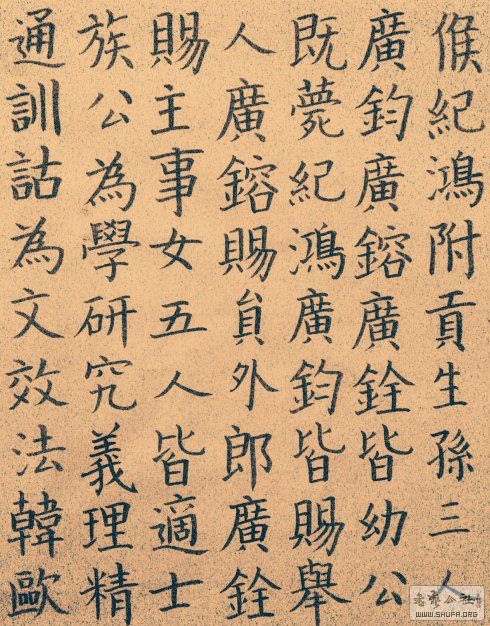 侯紀鴻附貢生孫三人
廣鈞廣鎔廣銓皆幼公
既薨紀鴻廣鈞皆賜舉
人廣鎔賜員外郎廣銓
賜主事女五人皆適士
族公為學研究義理精
通訓詁為文效法韓歐
WWW.SHUFA.ORG